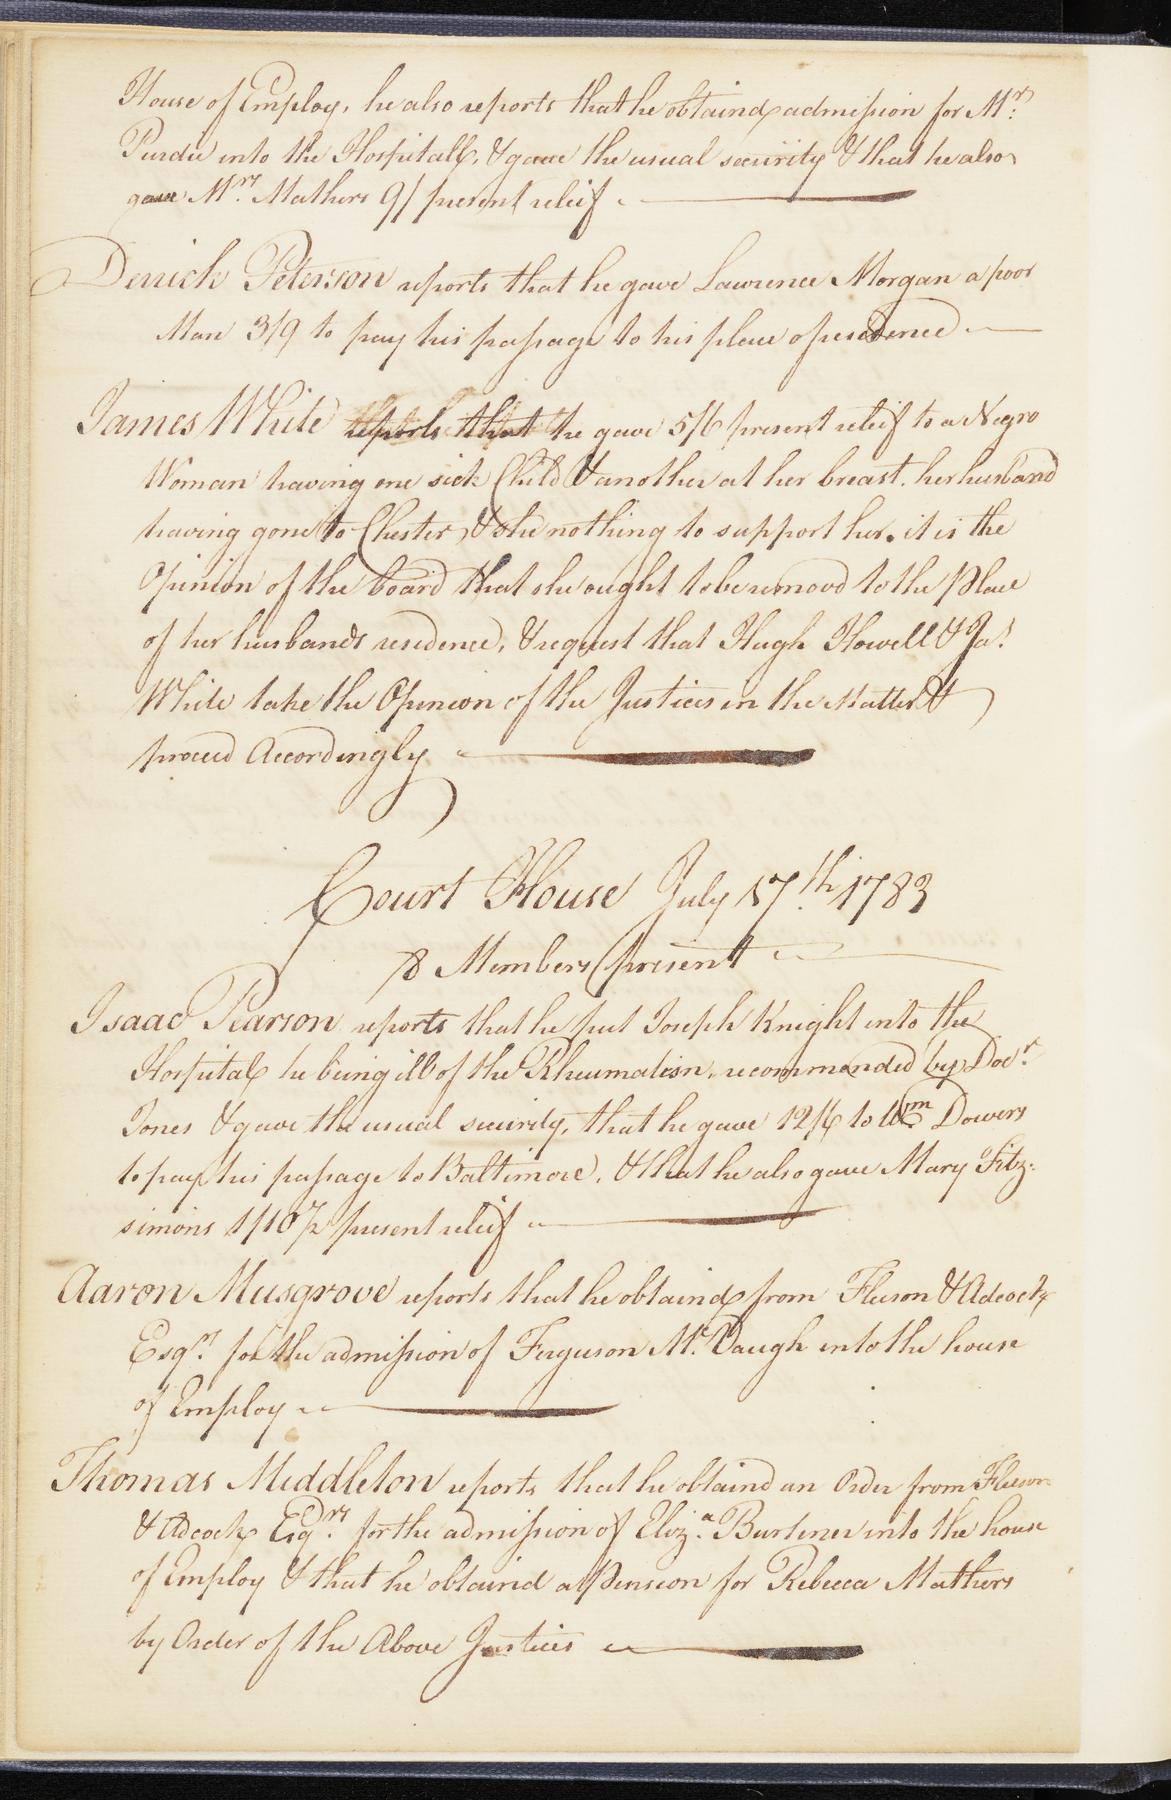 House of Employ, he also reports that he obtaind admission for Mr.
Purdie into the Hospitall, & gave the usual security & that he also
gave Mrs. Mathers 9/ present releif
Derrick Peterson reports that he gave Lawrence Morgan a poor
Man 3/9 to pay his passage to his place of residence
James White reports that he gave 5/6 present releif to a Negro
Woman having one sick Child & another at her breast. her husband
having gone to Chester, & she nothing to support her. it is the
Opinion of the board that she ought to be removd to the place
of her husbands residence, & request that Hugh Howell & Jas.
White take the Opinion of the Justices in the Matter &
proceed Accordingly
Court House July 17th. 1783
8 Members present
Isaac Pearson reports that he put Joseph Knight into the
Hospital he being ill of the Rheumatism, recommended by Docr.
Jones & gave the usual security, that he gave 12/6 to Wm Dowers
to pay his passage to Baltimore, & that he also gave Mary Fitz-
simons 1/10½ present releif
Aaron Musgrove reports that he obtaind from Fleeson & Adcock
Esqrs. for the admission of Ferguson Mc.Vaugh into the house
of Employ
Thomas Middleton reports that he obtaind an Order from Fleeson
& Adcock Esqrs. for the admission of Eliza. Burtener into the house
of Employ & that he obtaind a Pension for Rebecca Mathers
by Order of the Above Justices